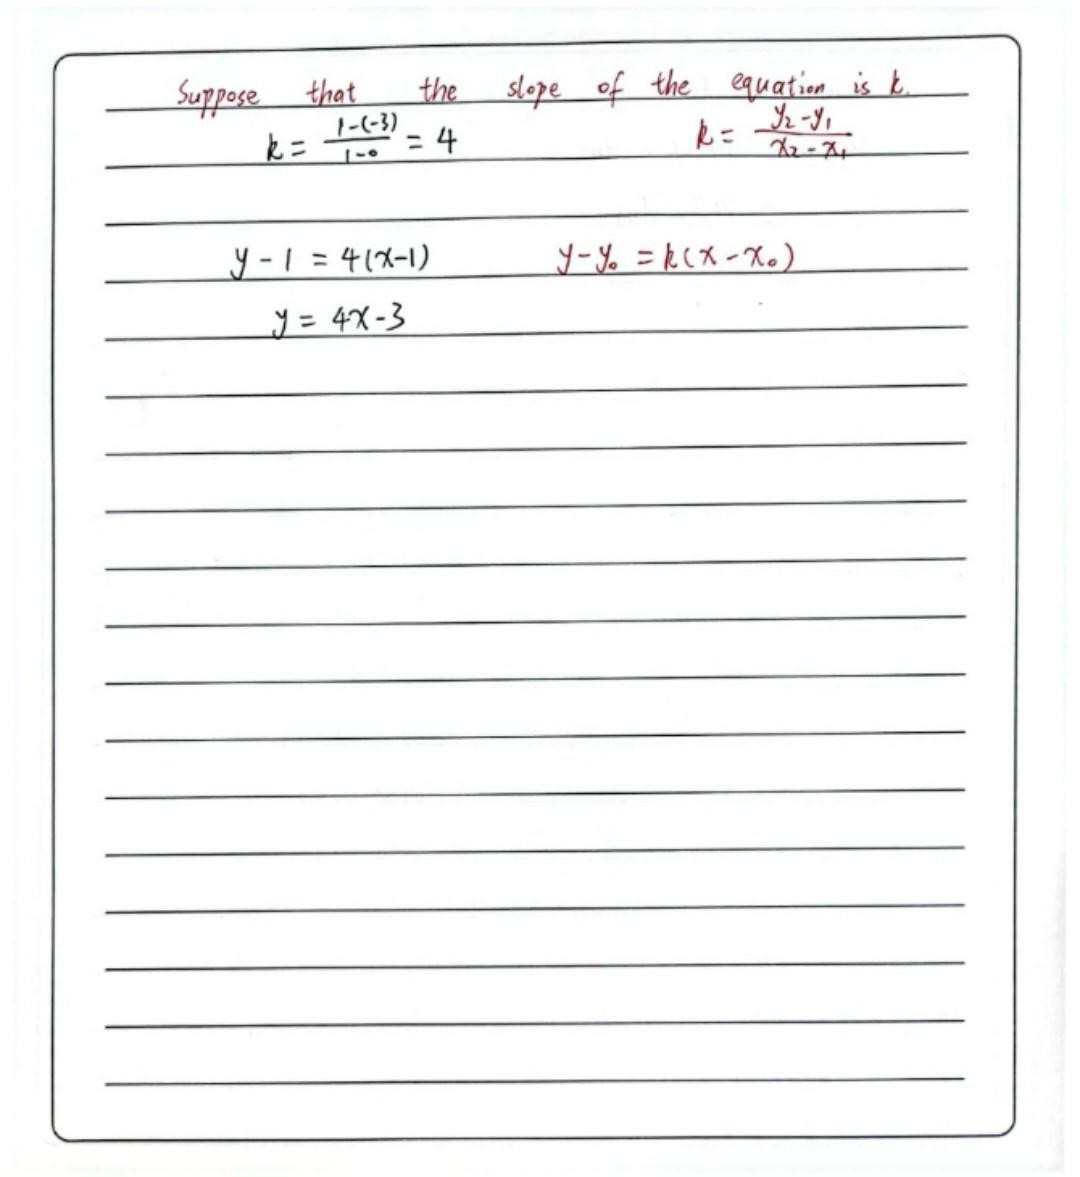 Suppose that the slope of the equation is k.
k = \frac{1-(-3)}{1-0} = 4 k = \frac{y_2-y_1}{x_2-x_1}
y-1 = 4(x-1) y-y_0 = k(x-x_0)
y = 4x-3